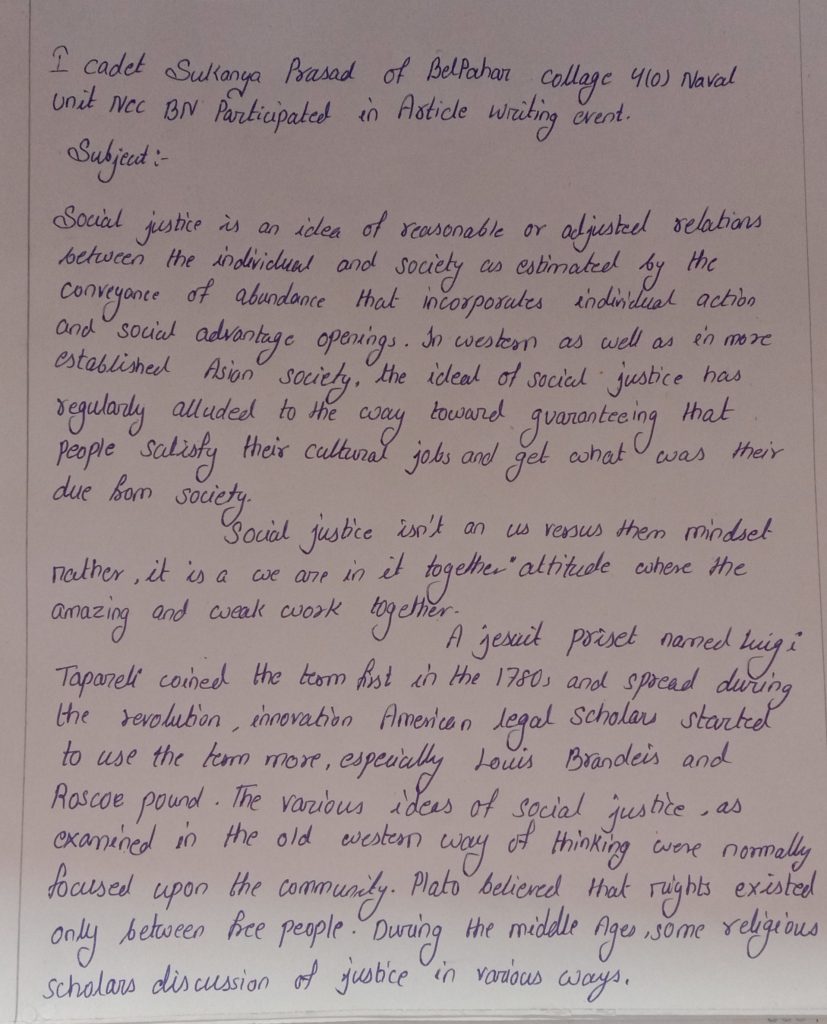 I cadet Sukanya Prasad of BelPahar collage 4(O) Naval
Unit Ncc BN Participated in Article writing event.
Subject :-
Social justice is an idea of reasonable or adjusted relations
between the individual and society as estimated by the
conveyance of abundance that incorporates individual action
and social advantage openings. In western as well as in more
established Asian society, the ideal of social justice has
regularly alluded to the way toward guaranteeing that
people satisfy their cultural jobs and get what was their
due from society.
Social justice isn't an us versus them mindset
rather, it is a we are in it together" attitude where the
amazing and weak work together.
A jesuit priset named Luigi
Tapareli coined the term first in the 1780s and spread during
the revolution, innovation American legal scholars started
to use the term more, especially Louis Brandeis and
Roscoe pound. The various ideas of social justice, as
examined in the old western way of thinking were normally
focused upon the community. Plato believed that rights existed
only between free people. During the middle Ages, some religious
scholars discussion of justice in various ways.